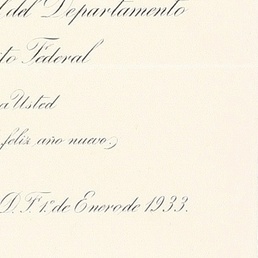 l del Departamento
to Federal
a Usted
feliz año nuevo,
D. F. 1º de Enero de 1933.